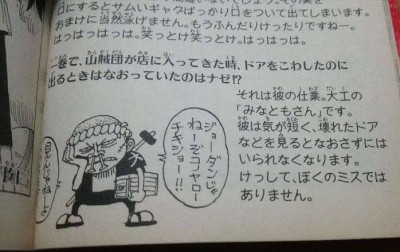 口にするとサムいギャグばっかり口をついて出てしまいます。
おまけに当然泳げません。もうふんだりけったりですねー。
はっはっはっは。笑っとけ笑っとけ。はっはっは。
一巻で、山賊団が店に入ってきた時、ドアをこわしたのに
出るときはなおっていたのはナゼ!?
それは彼の仕業。大工の
「みなともさん」です。
彼は気が短く、壊れたドア
などを見るとなおさずには
いられなくなります。
けっして、ぼくのミスでは
ありません。
ジョーダンじゃ
ねーぞコノヤロー
チキショー!!